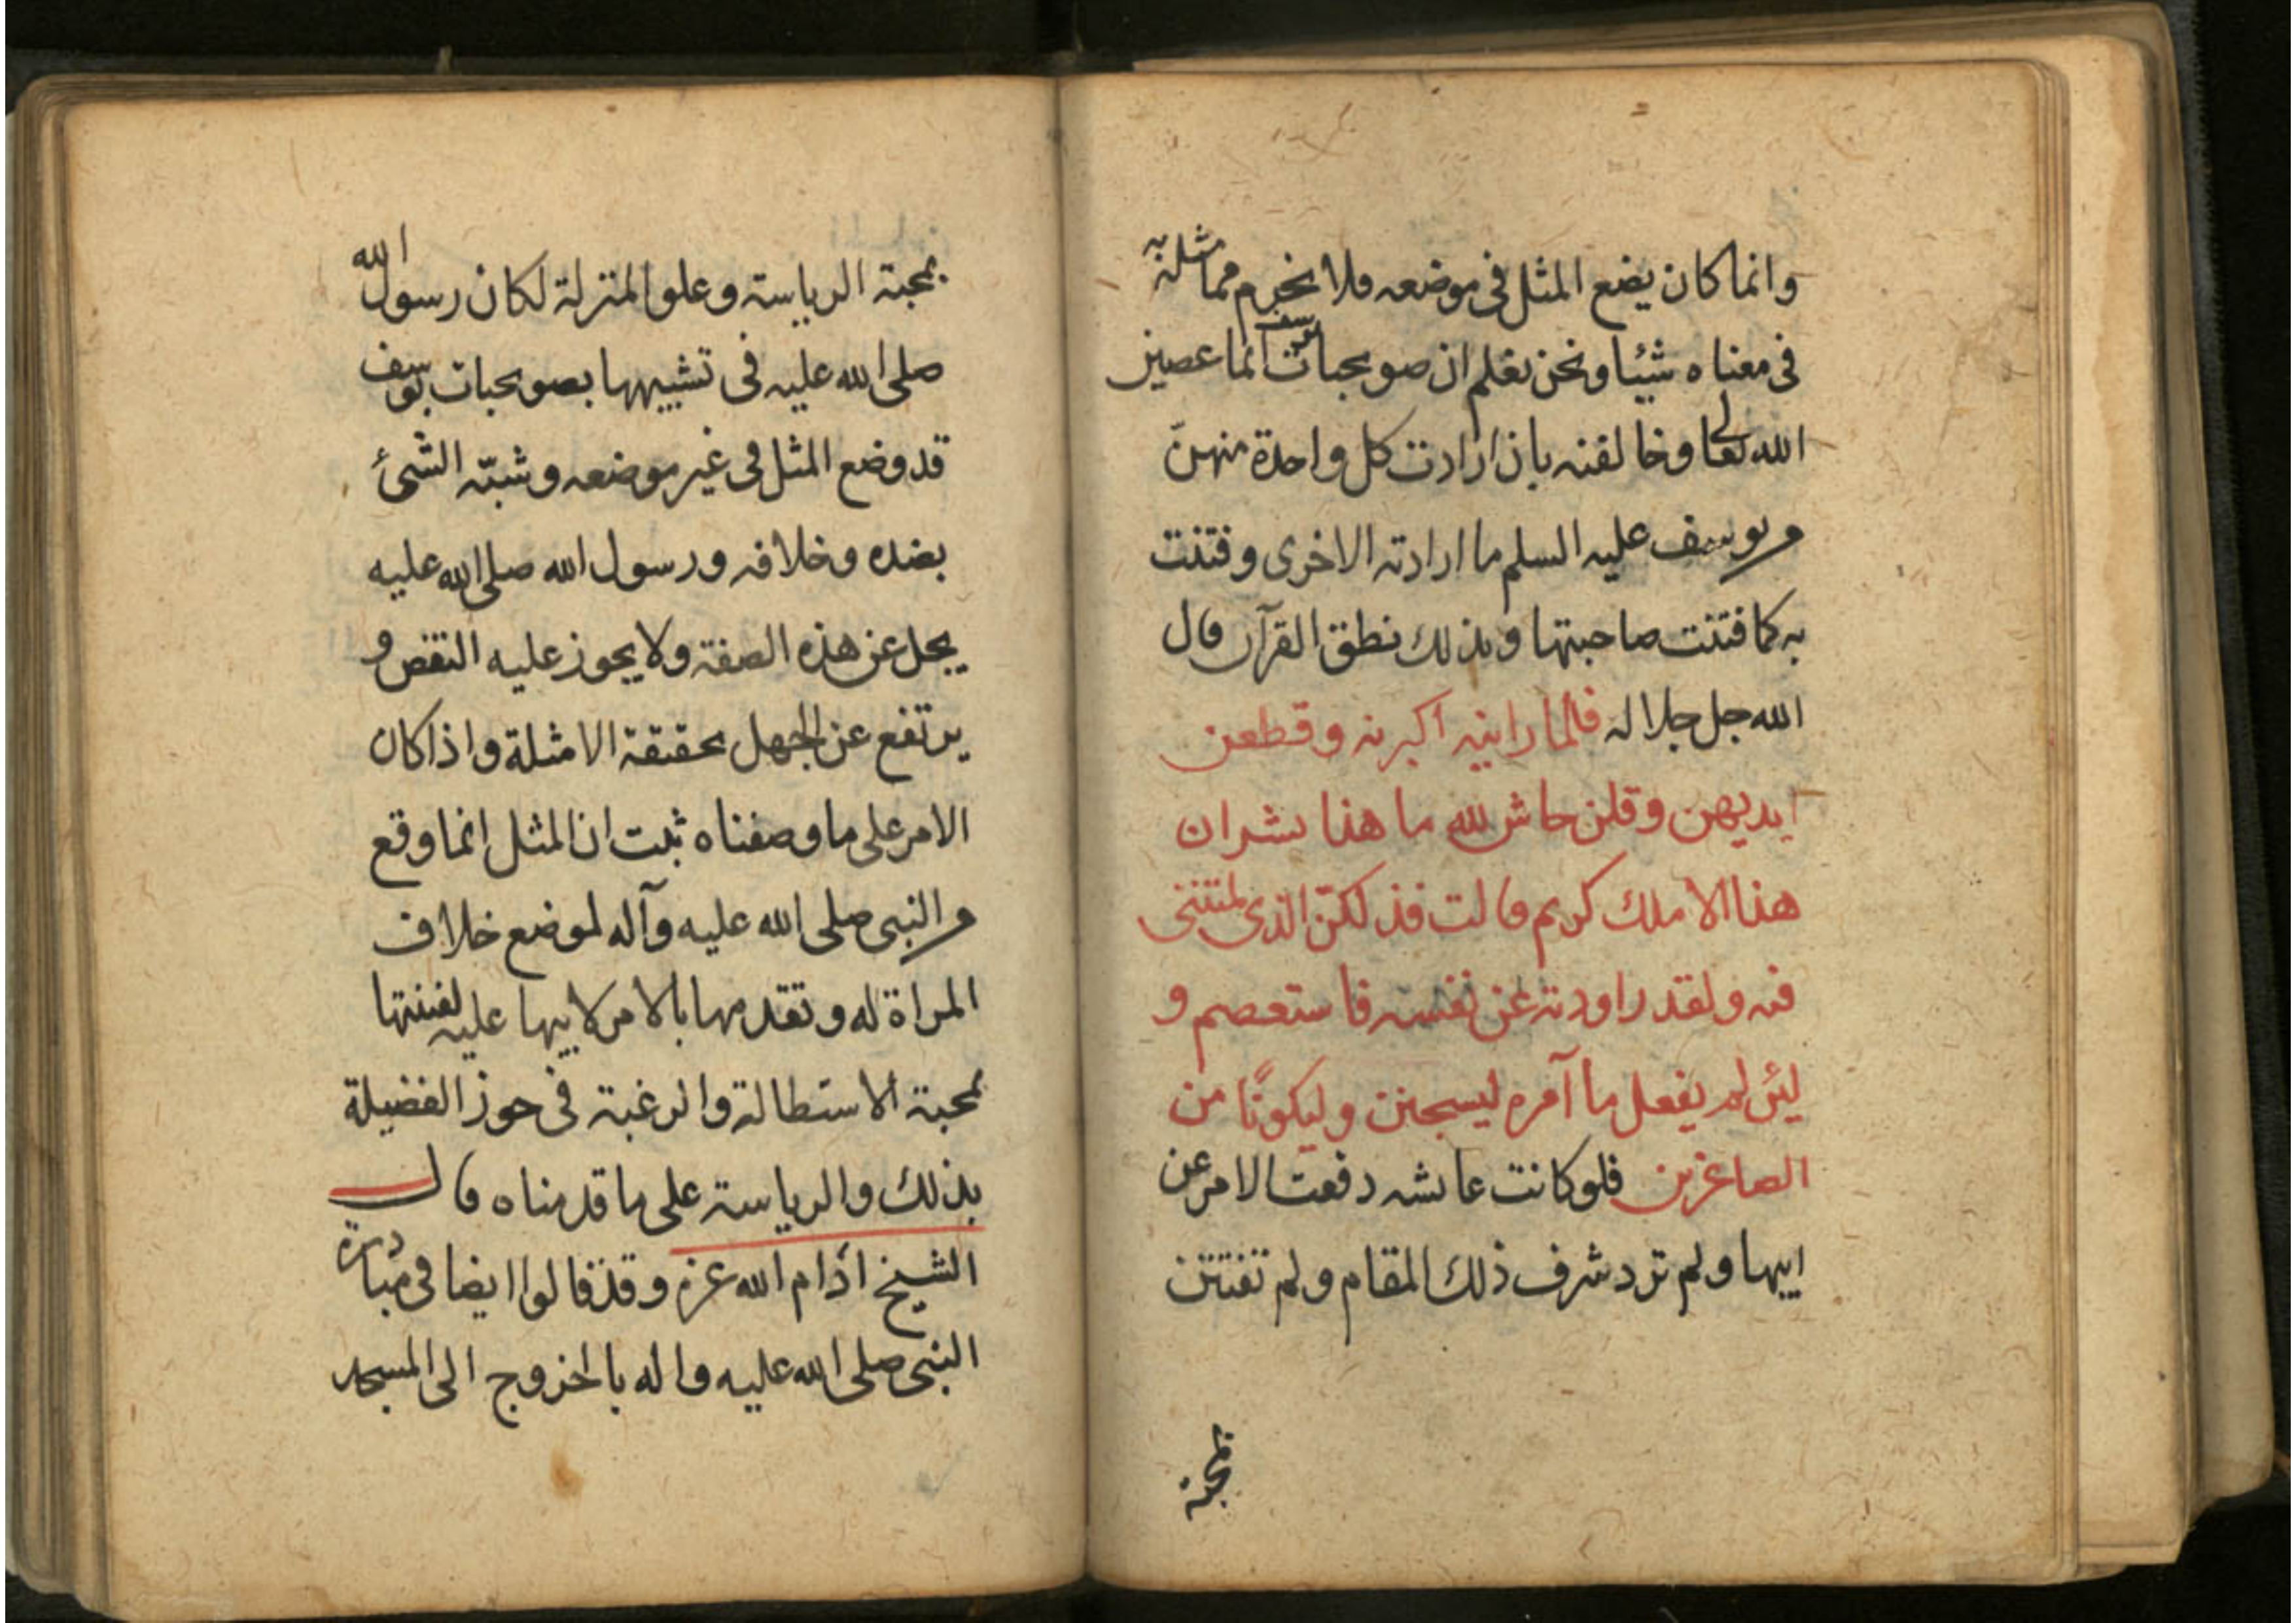 وانما كان يضع المثل فى موضعه ولا يخرم مما مثله به
فى معناه شيئا ونحن نعلم ان صويحبات يوسف انما عصين
الله تعالى وخالفنه بان ارادت كل واحدة منهنّ
من يوسف عليه السلم ما ارادته الاخرى وفتنت
به كما فتنت صاحبتها وبذلك نطق القرآن قال
الله جل جلاله فلما راينه أكبرنه وقطعن
ايديهن وقلن حاش لله ما هذا بشرا ان
هذا الا ملك كريم قالت فذلكنّ الذى لمتننى
فيه ولقد راودته عن نفسه فاستعصم و
لئن لم يفعل ما آمره ليسجنن وليكونًا من
الصاغرين فلو كانت عايشه دفعت الامر عن
ابيها ولم ترد شرف ذلك المقام ولم تفتتن
لمحبة
بمحبة الرياسة وعلو المنزلة لكان رسول الله
صلى الله عليه فى تشبيهها بصويحبات يوسف
قد وضع المثل فى غير موضعه وشبّه الشئ
بضده وخلافه ورسول الله صلى الله عليه
يجل عن هذه الصفة ولا يجوز عليه النقص و
يرتفع عن الجهل بحقيقة الامثلة واذا كان
الامر على ما وصفناه ثبت ان المثل انما وقع
من النبى صلى الله عليه وآله لموضع خلاف
المراة له وتقدمها بالامر لابيها عليه لفتنتها
لمحبة الاستطالة والرغبة فى حوز الفضيلة
بذلك والرياسة على ما قدمناه قال
الشيخ ادام الله عزه وقد قالوا ايضا فى مبادرة
النبى صلى الله عليه واله بالخروج الى المسجد